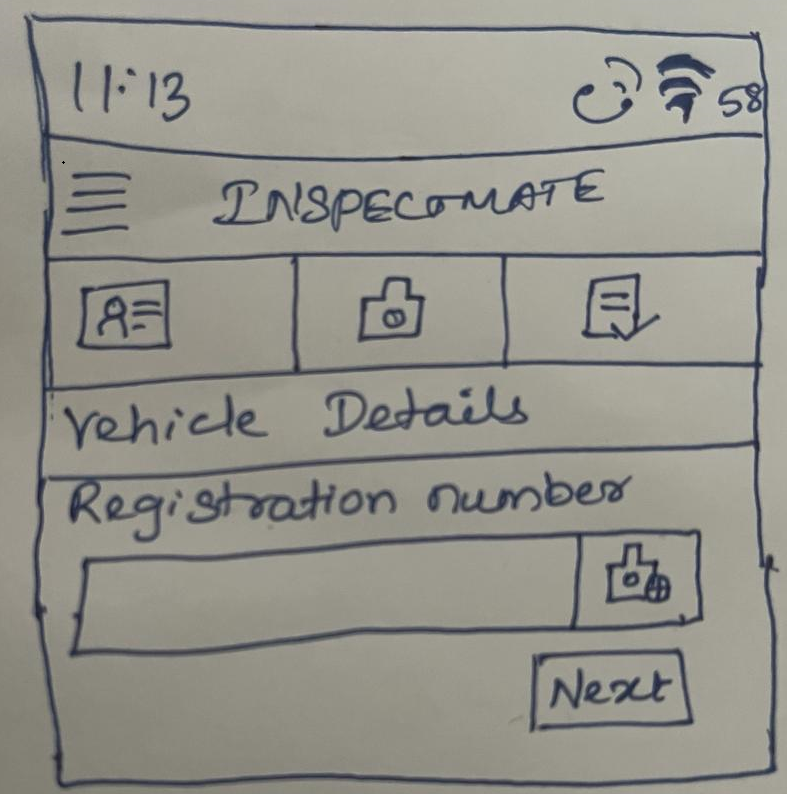 11:13 58
INSPECOMATE
Vehicle Details
Registration number
Next